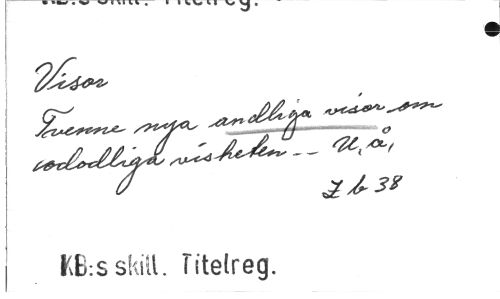 KB:s skill. Titelreg.
Visor
Tvenne nya andliga visor om
ododliga visheten -- U, å,
Z b 38
KB:s skill. Titelreg.